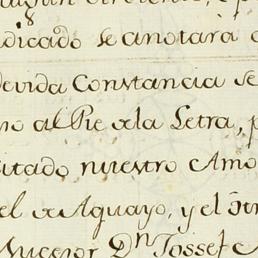 dicado se anotará
devida Constancia se
no al Pie xla Letra,
citado nuestro Amo
el x Aguayo, y el Otr
Sucesor Dn Jossef